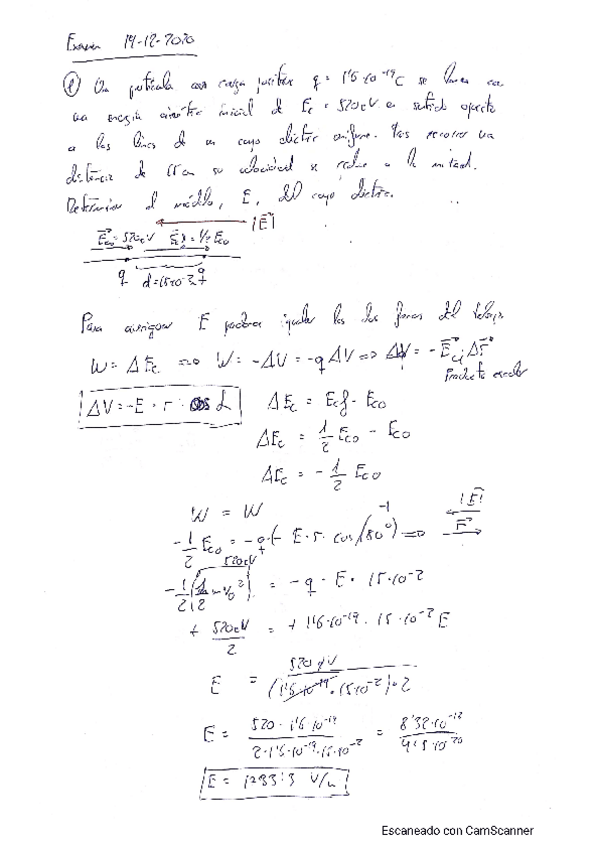 Examen 19-12-2020
① Una partícula con carga positiva q = 1'6·10⁻¹⁹C se lanza con
una energía cinética inicial de Ec = 520eV en sentido opuesto
a las líneas de un campo eléctrico uniforme. Tras recorrer una
distancia de 15cm su velocidad se reduce a la mitad.
Determinar el módulo, E, del campo eléctrico.
|E⃗|
Eco = 520eV Ecf = 1/2 Eco
q q
d = 15·10⁻²
Para averiguar E podemos igualar las dos formas del trabajo
W = ΔEc => W = -ΔU = -q ΔV => ΔV = -E⃗ · Δr⃗
Producto escalar
ΔV = -E · r · cos α ΔEc = Ecf - Eco
ΔEc = 1/2 Eco - Eco
ΔEc = - 1/2 Eco
W = W
-1 |E⃗|
-1/2 Eco = -q·(- E·r · cos(180°) => r⃗
520eV
= -q · E · 15·10⁻²
+ 520eV/2 = + 1'6·10⁻¹⁹ · 15·10⁻² E
E = 520 eV / (1'6·10⁻¹⁹ · 15·10⁻²)·2
E = 520 · 1'6·10⁻¹⁹ / 2·1'6·10⁻¹⁹·15·10⁻² = 8'32·10⁻¹⁷ / 4'8·10⁻²⁰
E = 1733'3 V/m
Escaneado con CamScanner